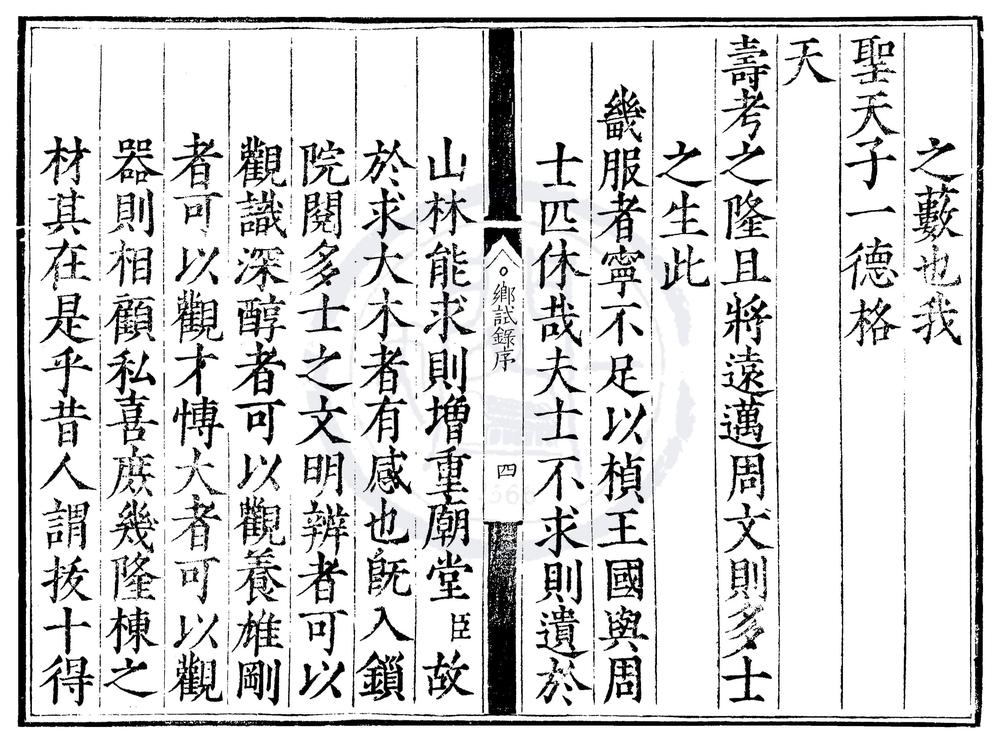 之藪也我
聖天子一德格
天
壽考之隆且將遠邁周文則多士
之生此
畿服者寧不足以楨王國與周
士匹休哉夫士不求則遺於
鄉試錄序
四
山林能求則增重廟堂臣故
於求大木者有感也既入鎖
院閱多士之文明辨者可以
觀識深醇者可以觀養雄剛
者可以觀才愽大者可以觀
器則相顧私喜庶幾隆棟之
材其在是乎昔人謂拔十得